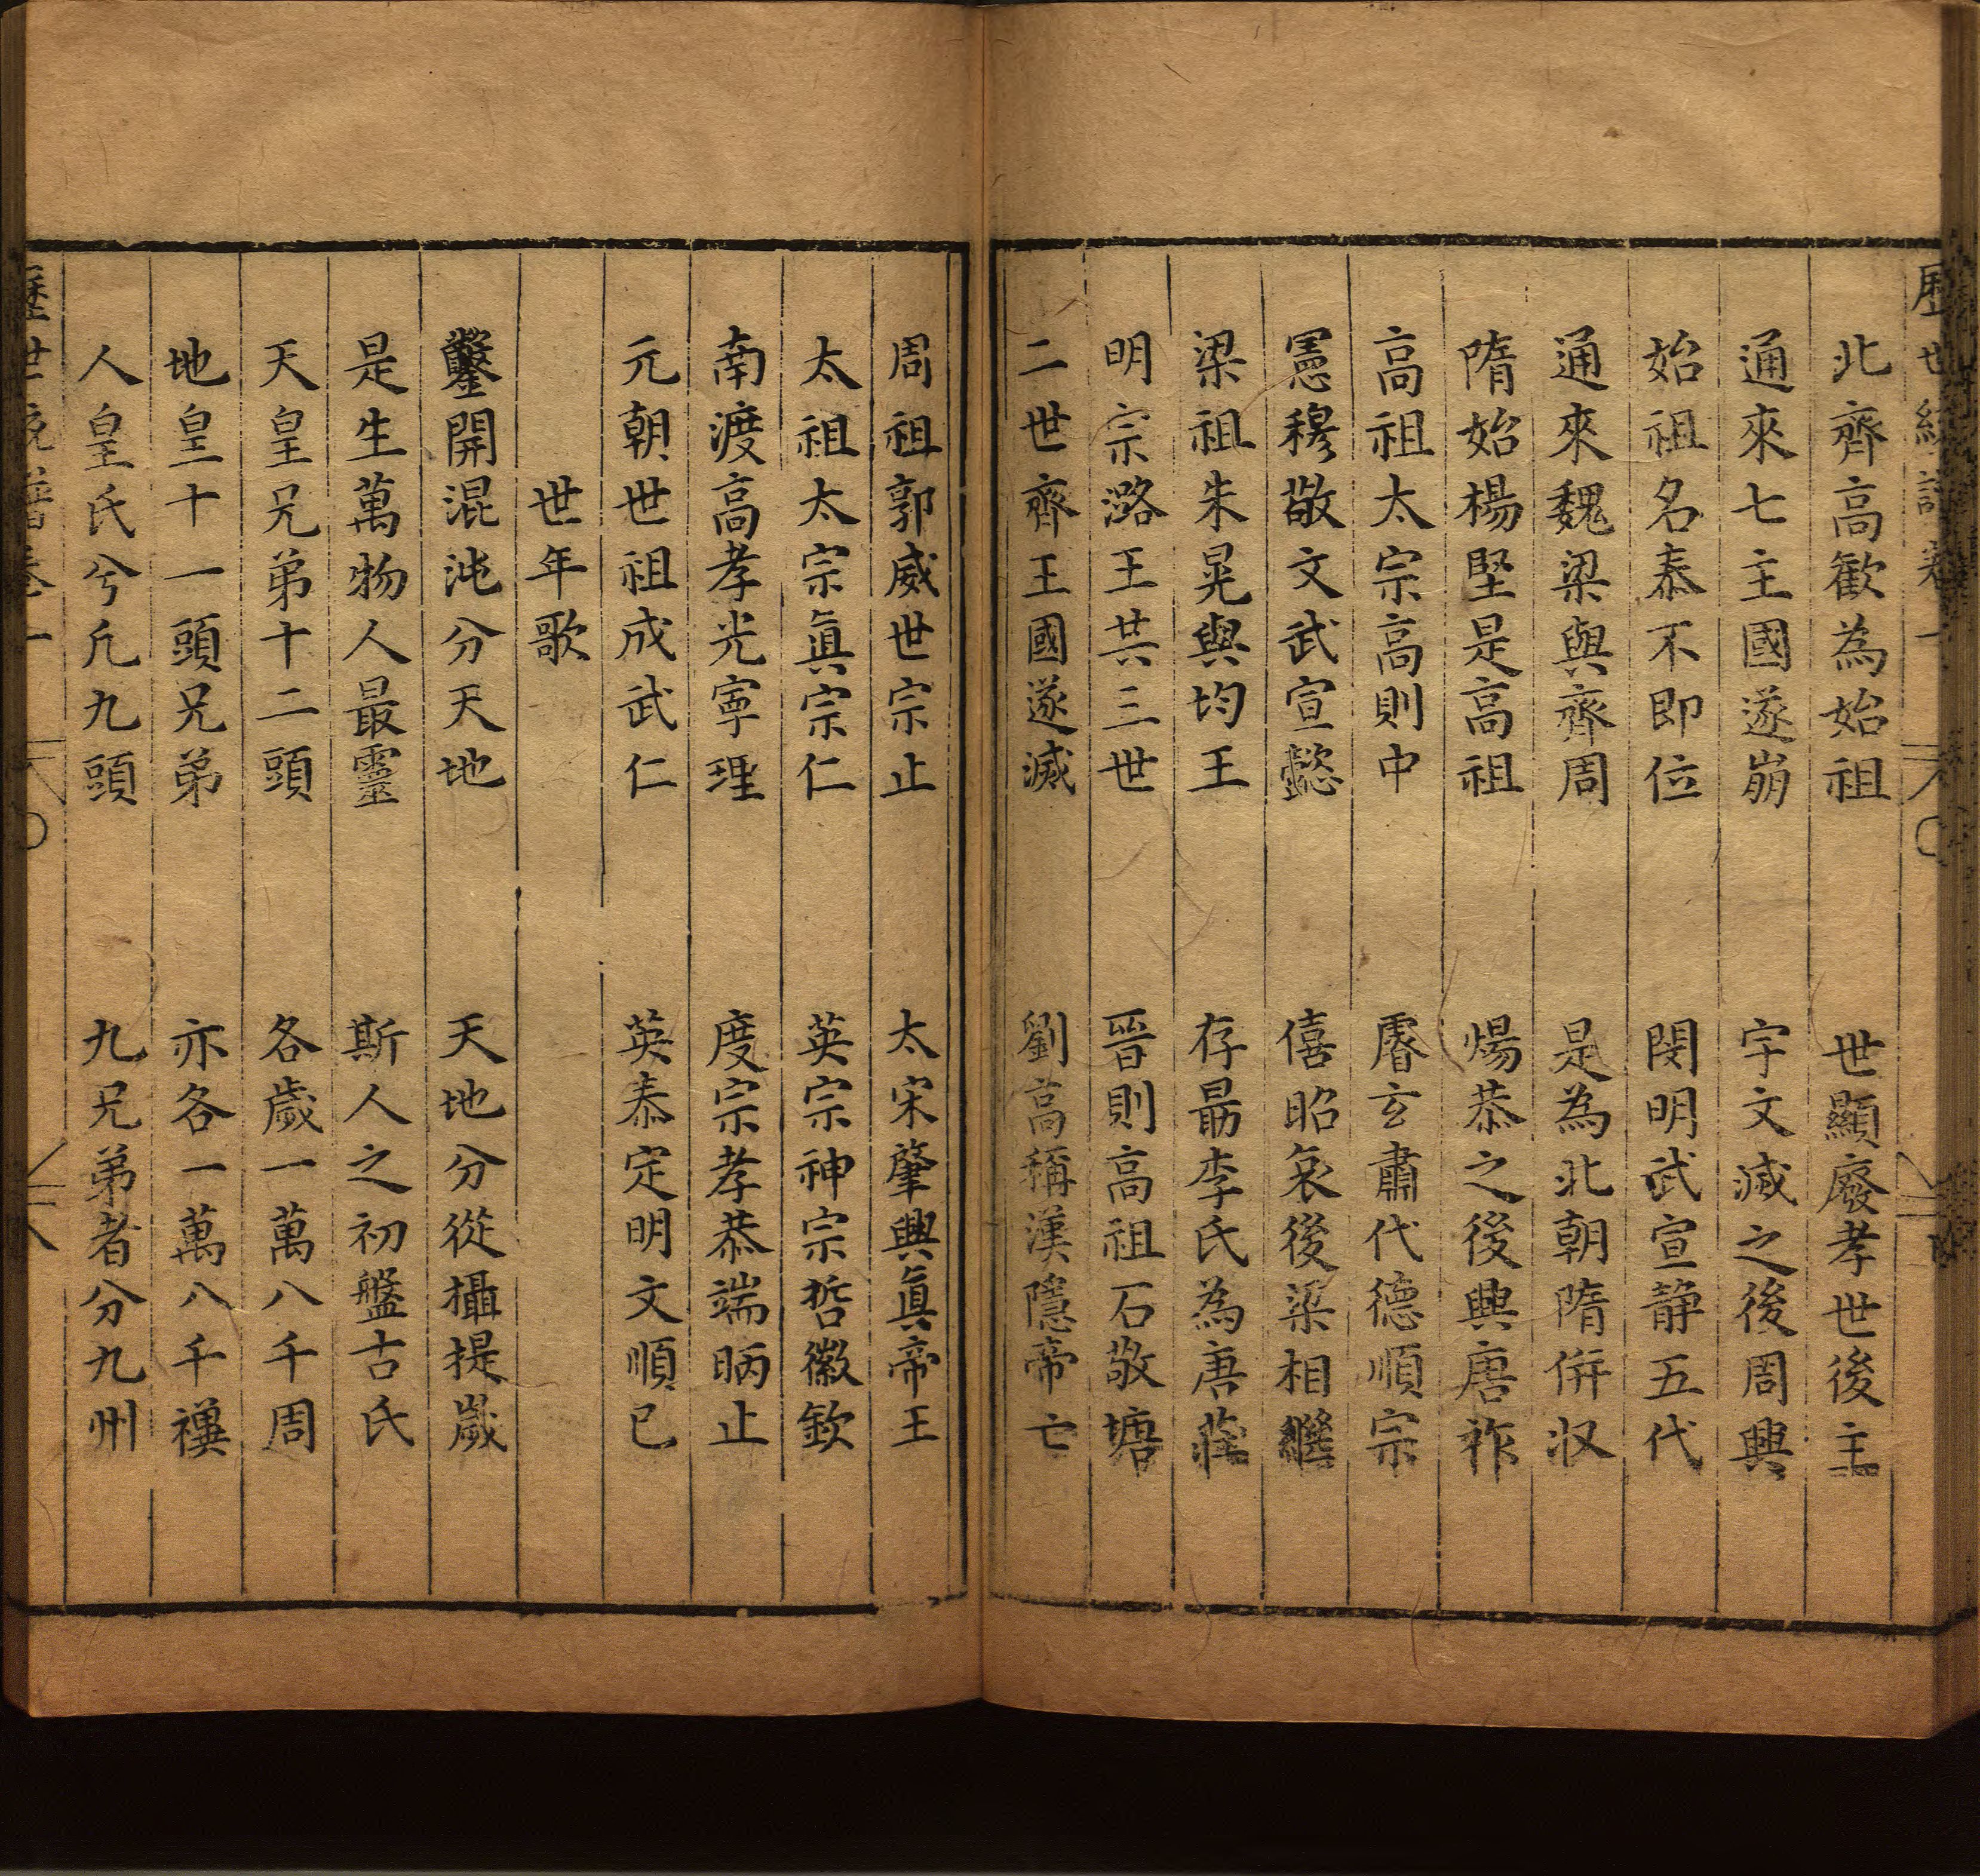 北齊高歡為始祖　世顯廢孝世後主
通來七主國遂崩　宇文減之後周興
始祖名泰不即位　閔明武宣静五代
通來魏梁與齊周　是為北朝隋併収
隋始楊堅是高祖　煬恭之後興唐祚
高祖太宗高則中　睿玄肅代德順宗
憲穆敬文武宣懿　僖昭哀後梁相繼
梁祖朱晃與均王　存勗李氏為唐莊
明宗潞王共三世　晉則高祖石敬塘
二世齊王國遂滅　劉高稱漢隱帝亡
周祖郭威世宗止　太宋肇興真帝王
太祖太宗眞宗仁　英宗神宗哲徽欽
南渡高孝光寧理　度宗孝恭端昞止
元朝世祖成武仁　英泰定明文順已
世年歌
鑿開混沌分天地　天地分從攝提歲
是生萬物人最靈　斯人之初盤古氏
天皇兄弟十二頭　各歲一萬八千周
地皇十一頭兄弟　亦各一萬八千禩
人皇氏兮凡九頭　九兄弟者分九州
歷世統譜卷一